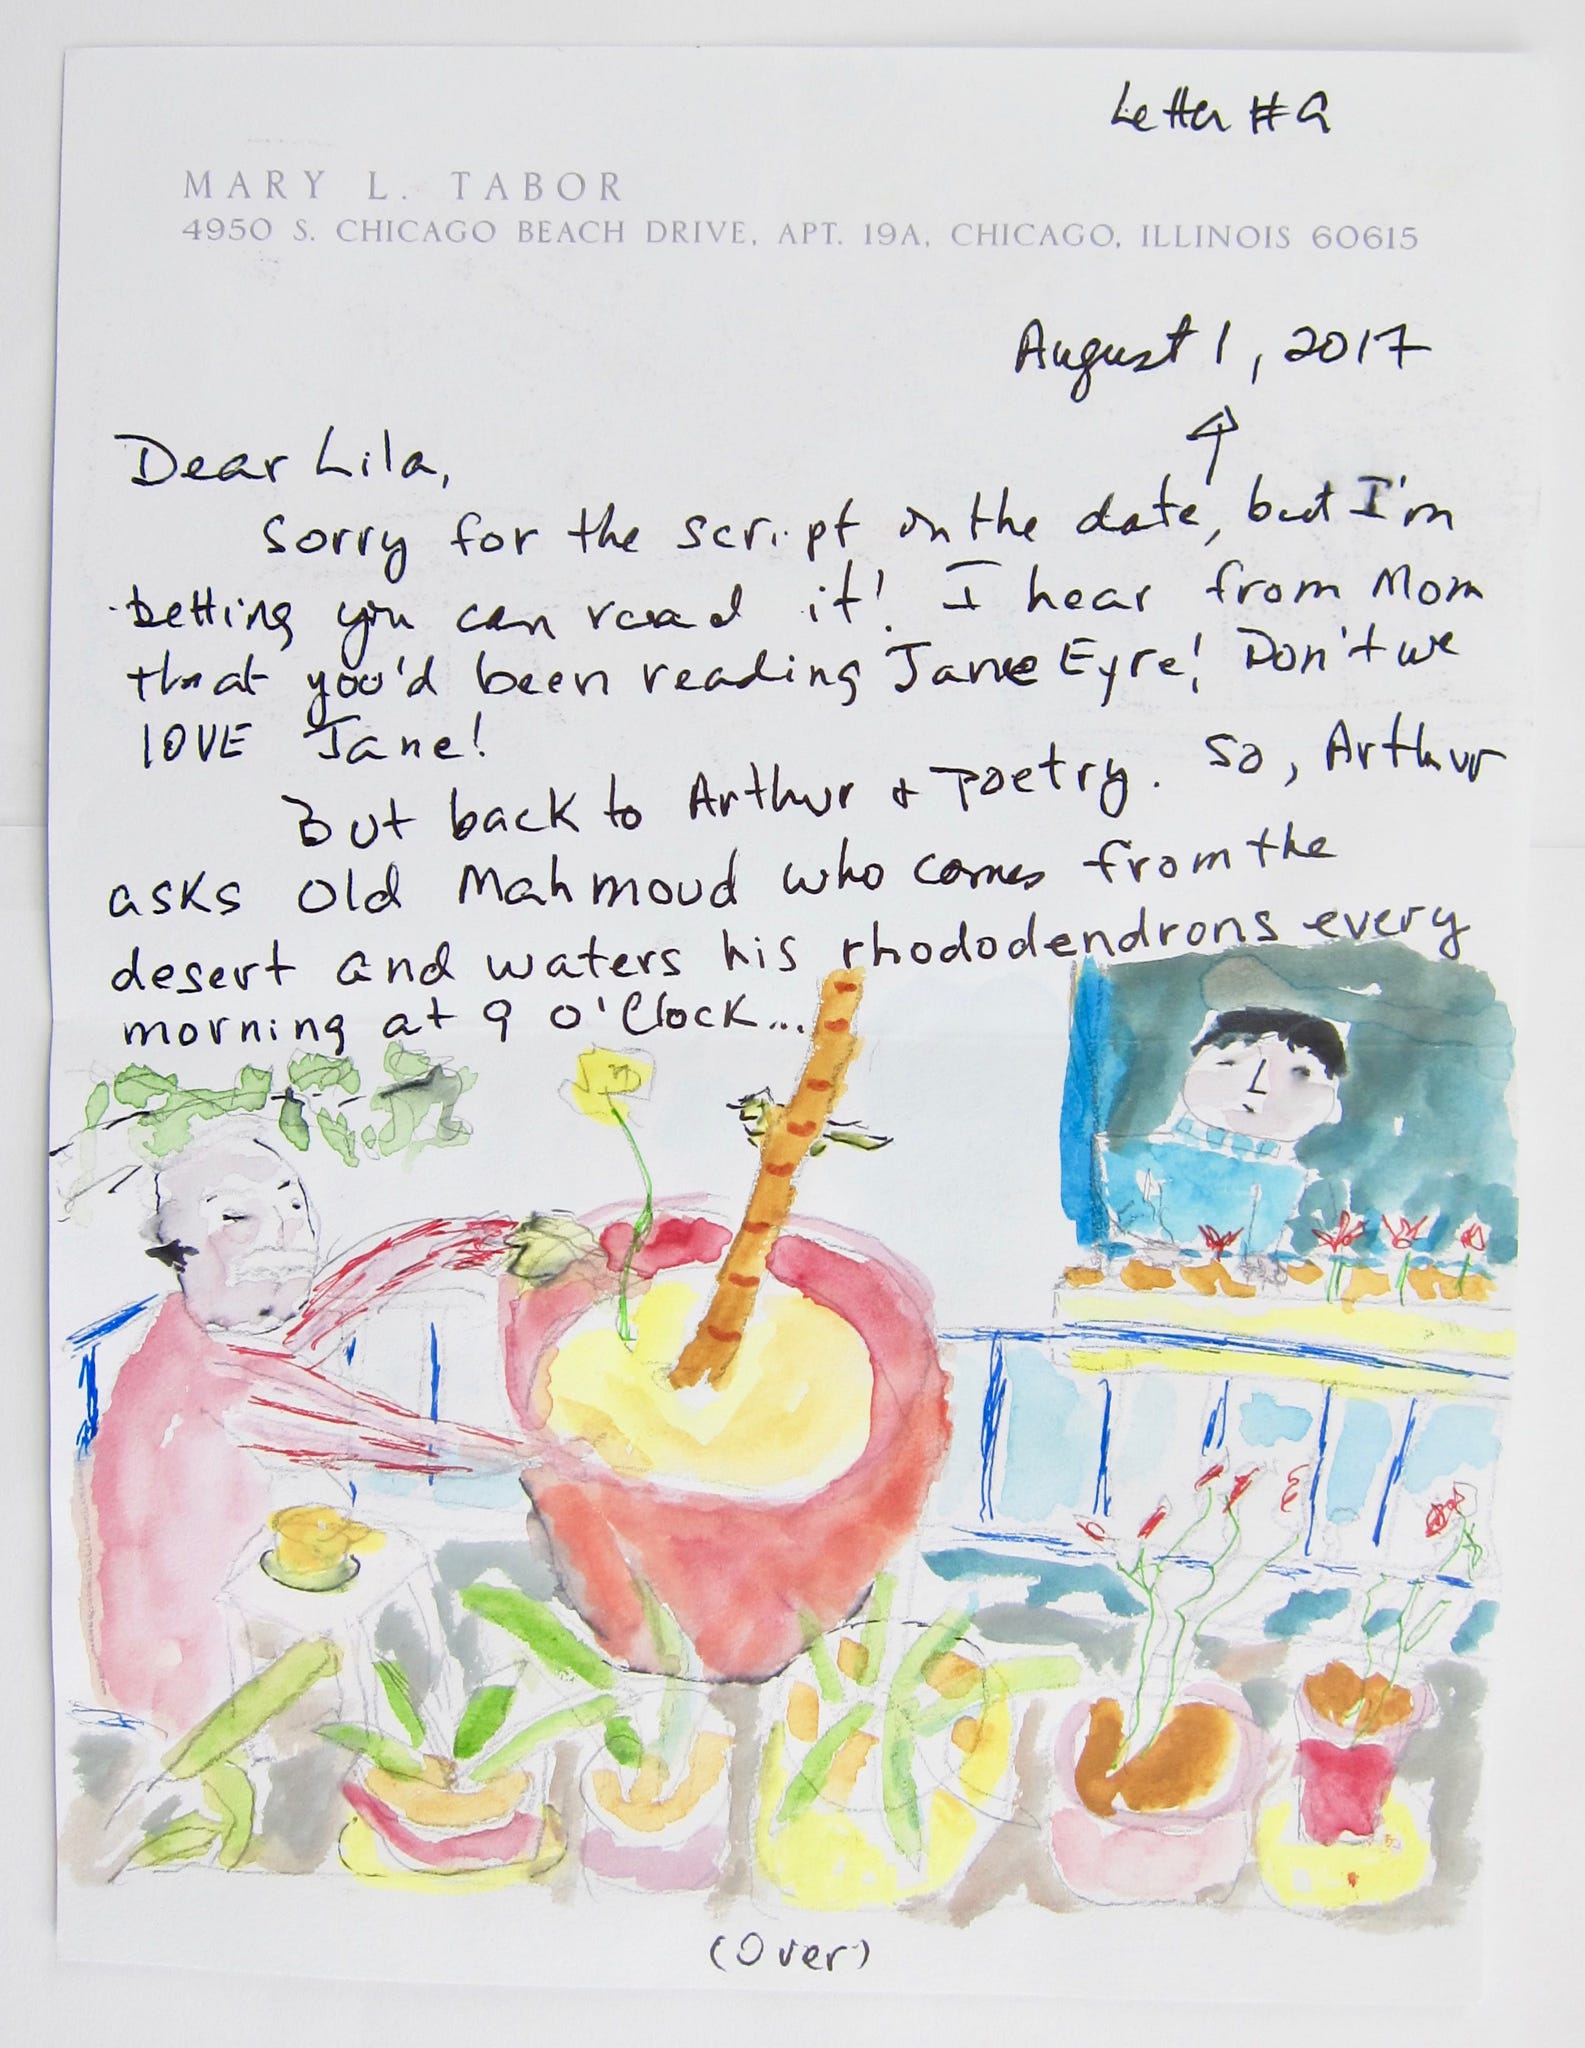 Letter #9
MARY L. TABOR
4950 S. CHICAGO BEACH DRIVE, APT. 19A, CHICAGO, ILLINOIS 60615
August 1, 2017
Dear Lila,
Sorry for the script in the date, but I'm
betting you can read it! I hear from Mom
that you'd been reading Jane Eyre! Don't we
lOVE Jane!
But back to Arthur & Poetry. So, Arthur
asks Old Mahmoud who comes from the
desert and waters his rhododendrons every
morning at 9 o'Clock...
(Over)